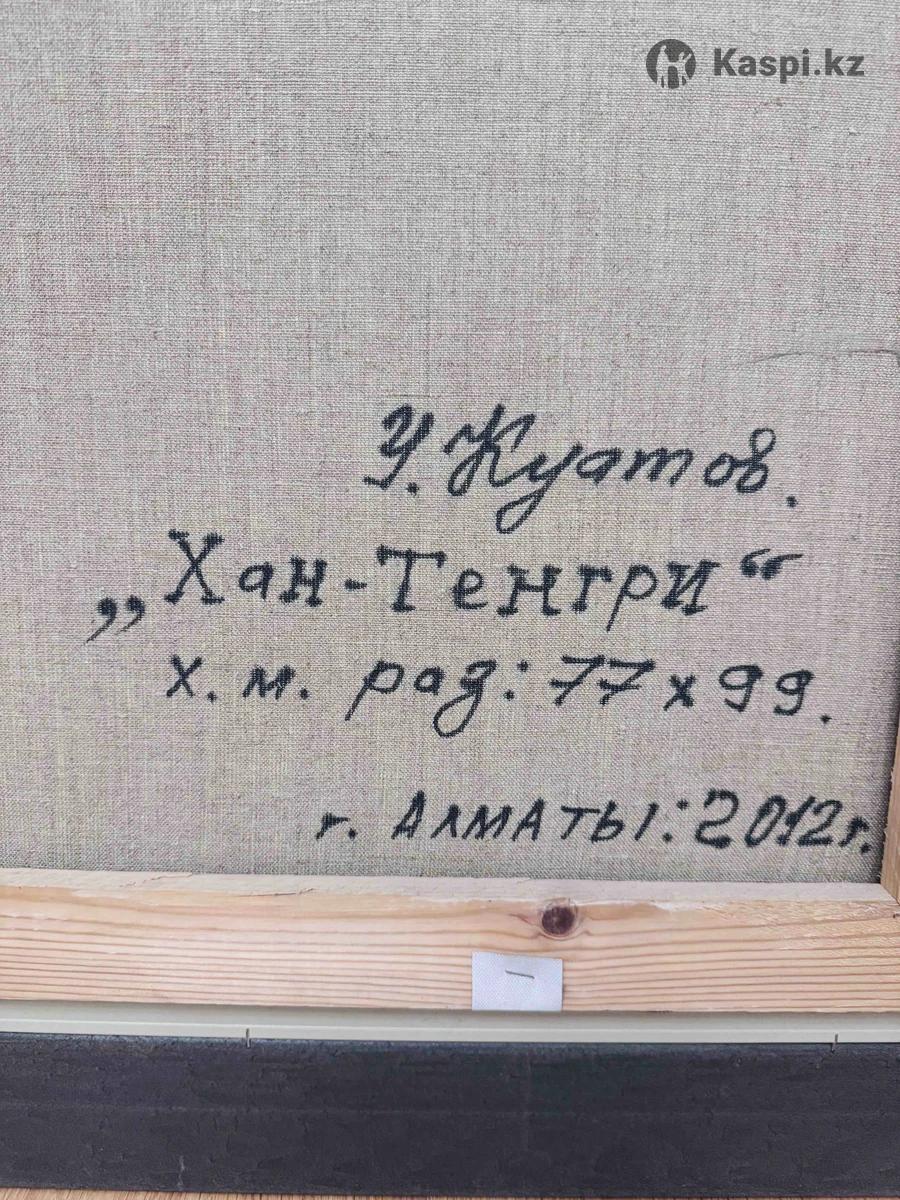 Kaspi.kz
У. Куатов.
„Хан-Тенгри“
х. м. рад: 77 x 99.
г. Алматы: 2012 г.